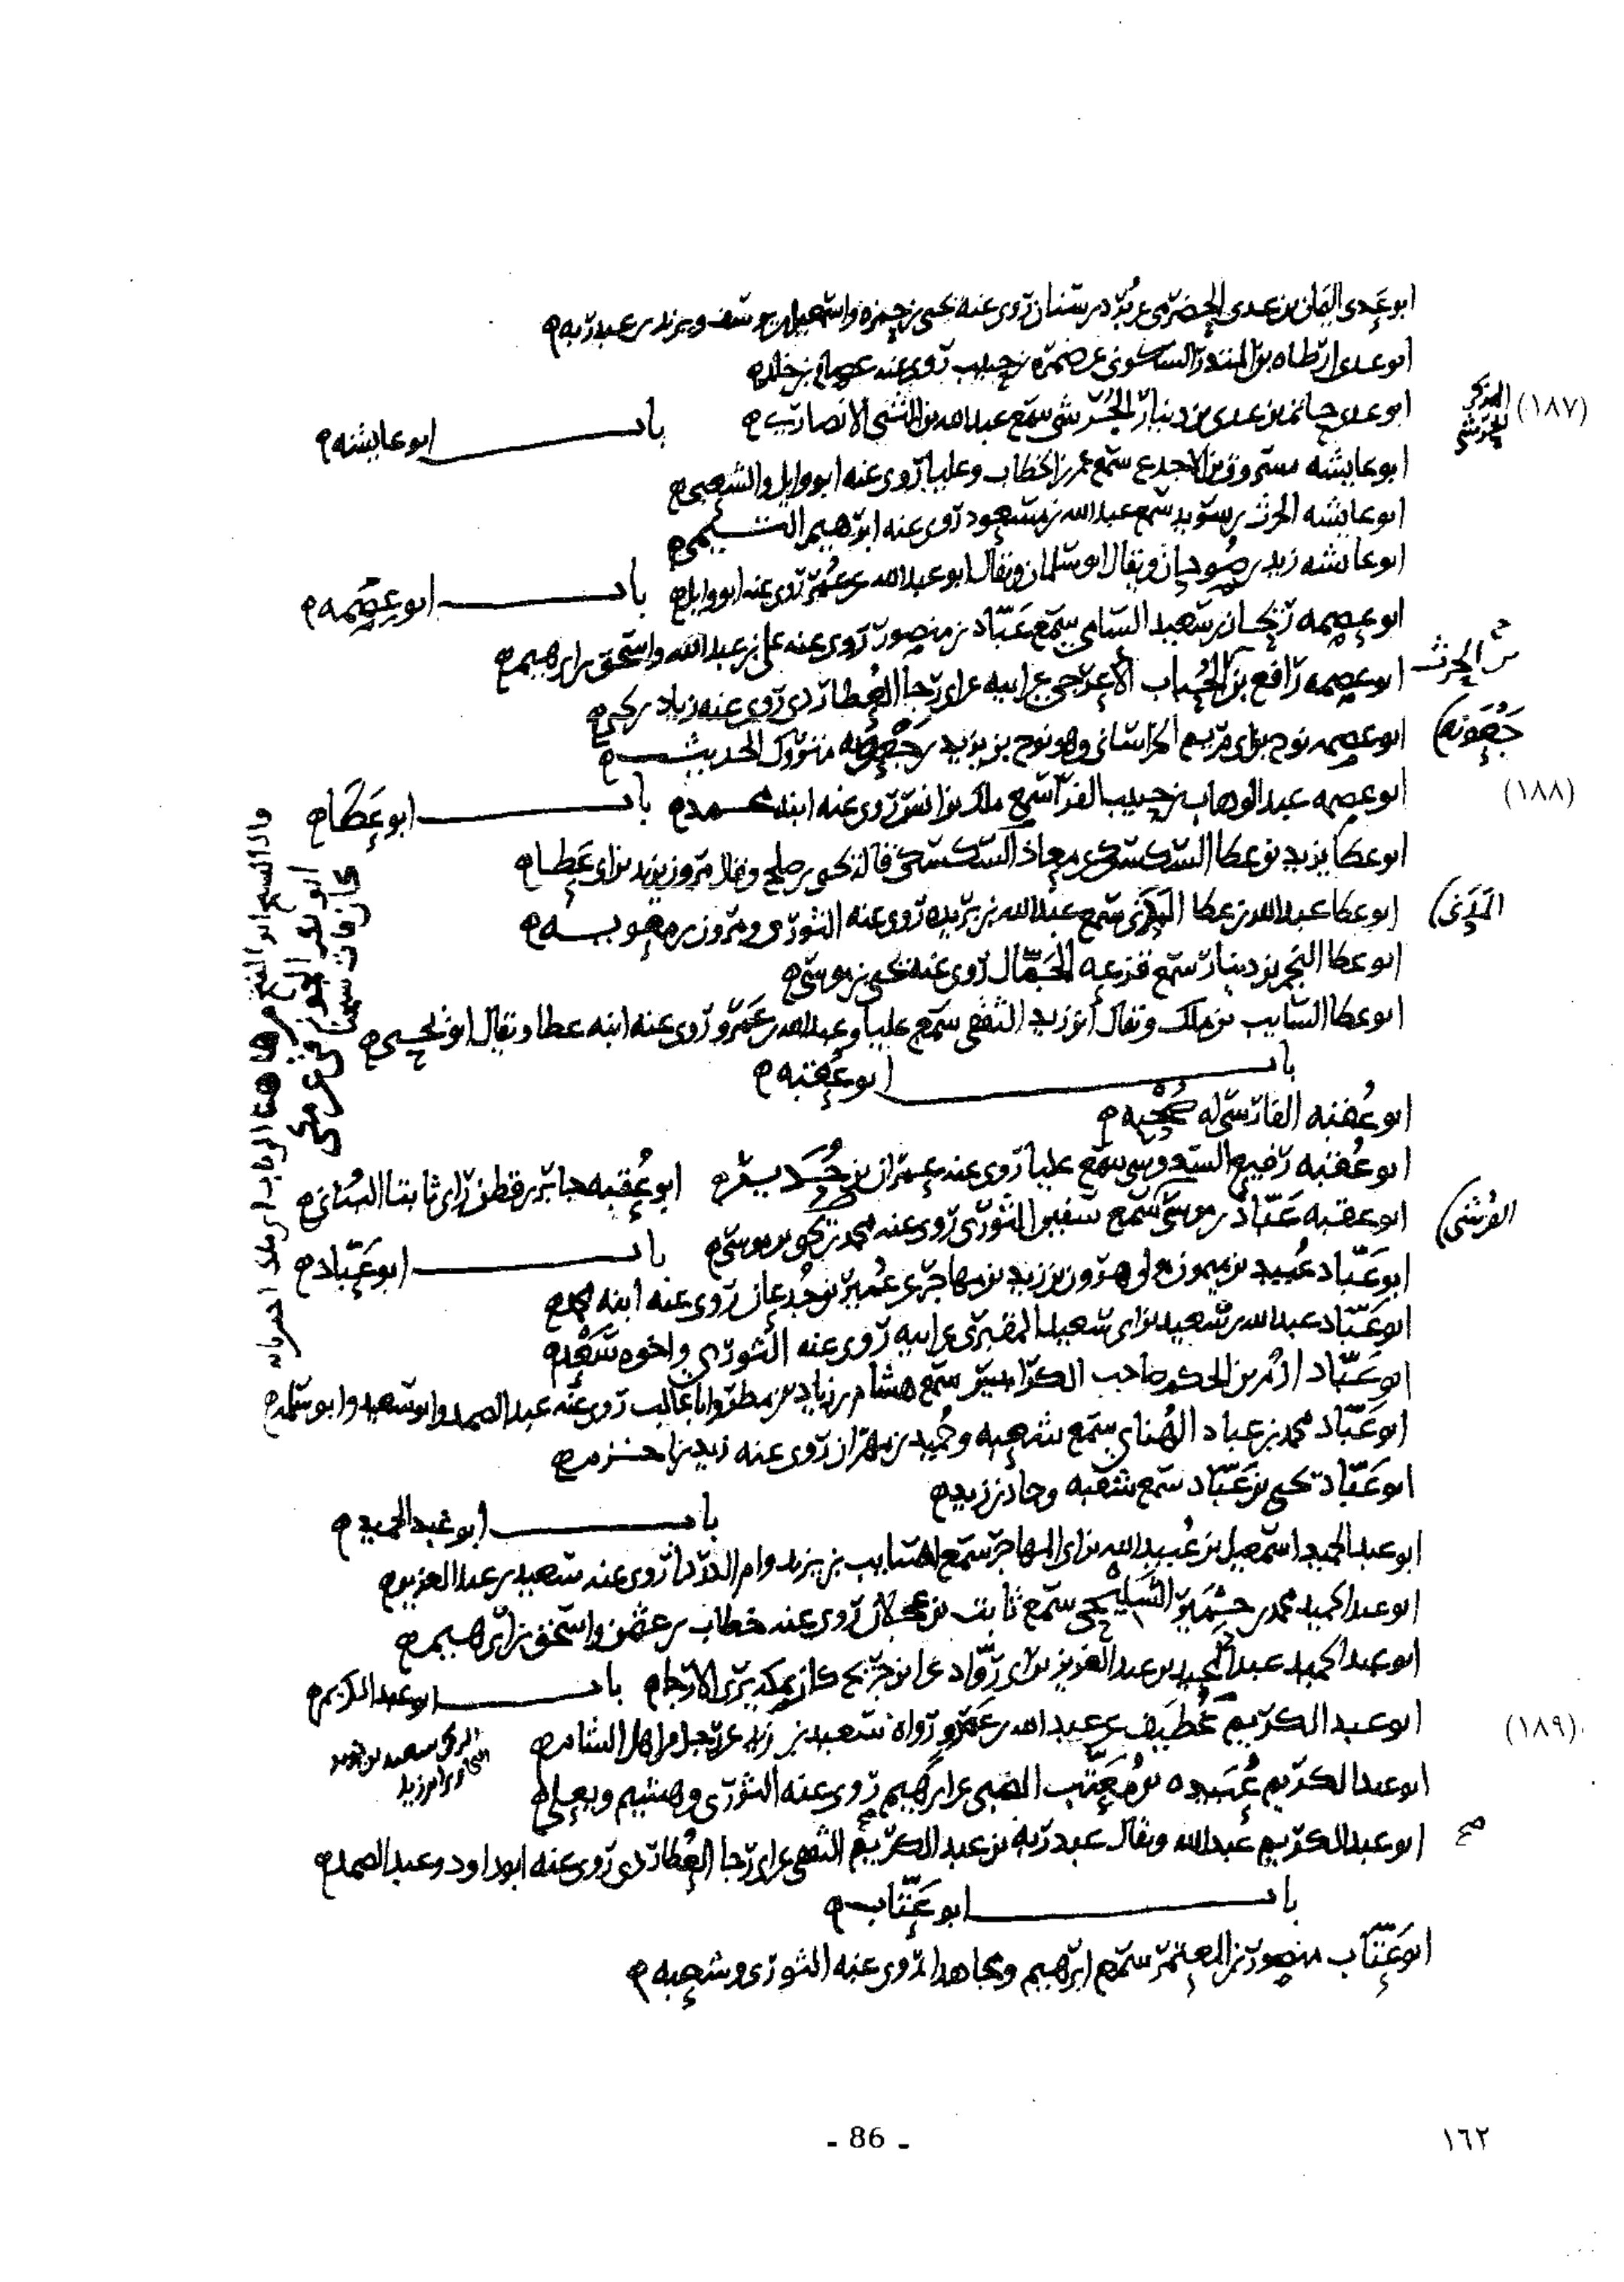 ابو عدى اليمان بن عدى الحضرمى عن برد بن سنان روى عنه يحيى بن حمزه واسمعيل بن يوسف ويزيد بن عبد ربه
ابو عدى ارطاه بن المنذر السكونى عن ضمره بن حبيب روى عنه عصام بن خلد
(١٨٧)
ابو عدى حاتم بن عدى بن دينار سمع عبد الله بن المثنى الانصارى
باب ابو عايشه
ابو عايشه مسروق بن الاجدع سمع عمر بن الخطاب وعليا روى عنه ابو وايل والشعبى
ابو عايشه الحرث بن سويد سمع عبد الله بن مسعود روى عنه ابرهيم التيمى
ابو عايشه زيد بن صوحان ويقال ابو سلمان ويقال ابو عبد الله عن عمر روى عنه ابو وايل
باب ابو عصمه
ابو عصمه ريحان بن سعيد السامى سمع عباد بن منصور روى عنه على بن عبد الله واسحق بن ابرهيم
بن الحرث
ابو عصمه رافع بن الحباب الاعرجى عن ابيه عن ابى رجا العطاردى روى عنه زياد بن يحيى
ابو عصمه نوح بن ابى مريم الخراسانى وهو نوح بن يزيد بن جعونه متروك الحديث
جعونه
(١٨٨)
ابو عصمه عبد الوهاب بن حبيب الفرا سمع ملك بن انس روى عنه ابنه محمد
باب ابو عطا
ابو عطا يزيد بن عطا السكسكى عن معاذ السكسكى قاله يحيى بن صلح وقال مروز يزيد بن ابى عطا
ابو عطا عبد الله بن عطا المدنى سمع عبد الله بن بريده روى عنه الثورى ومروان بن معويه
المدنى
ابو عطا النجم بن دينار سمع قزعه الجمال روى عنه يحيى بن موسى
ابو عطا السايب بن ملك ويقال ابن زيد الثقفى سمع عليا وعبد الله بن عمرو روى عنه ابنه عطا ويقال ابو يحيى
باب ابو عقبه
ابو عقبه الفارسى له صحبه
ابو عقبه رفيع السدوسى سمع عليا روى عنه عمران بن حدير
ابو عقبه جابر بن قطن راى ثابتا البنانى
ابو عقبه عباد بن موسى سمع سفين الثورى روى عنه محمد بن يحيى بن موسى
القرشى
باب ابو عباد
ابو عباد عبيد بن ميمون مولى هرون بن زيد بن مهاجر عن عمير بن جدعان روى عنه ابنه محمد
ابو عباد عبد الله بن سعيد بن ابى سعيد المقبرى عن ابيه روى عنه الثورى واخوه سعد
ابو عباد ازهر بن الحكم صاحب الكرابيس سمع هشام بن زياد بن مطر وابا غالب روى عنه عبد الصمد وابو سعيد وابو سلمه
ابو عباد محمد بن عباد الهناى سمع شعبه وحميد بن مهران روى عنه زيد بن اخزم
ابو عباد يحيى بن عباد سمع شعبه وحماد بن زيد
باب ابو عبد الحميد
ابو عبد الحميد اسمعيل بن عبيد الله بن ابى المهاجر سمع السايب بن يزيد وام الدردا روى عنه سعيد بن عبد العزيز
ابو عبد الحميد محمد بن حمير السليحى سمع ثابت بن عجلان روى عنه خطاب بن عثمن واسحق بن ابرهيم
ابو عبد الحميد عبد المجيد بن عبد العزيز بن ابى رواد عن ابن جريج كان بمكه يرى الارجا
باب ابو عبد الكريم
(١٨٩)
ابو عبد الكريم غطيف عن عبد الله بن عمرو رواه سعيد بن زيد عن رجل من اهل الشام
ابو عبد الكريم عبيده بن معتب الضبى عن ابرهيم روى عنه الثورى وهشيم ويعلى
صح
ابو عبد الكريم عبد الله ويقال عبد ربه بن عبد الكريم عن ابى رجا العطاردى روى عنه ابو داود وعبد الصمد
باب ابو عتاب
ابو عتاب منصور بن المعتمر سمع ابرهيم ومجاهدا روى عنه الثورى وشعبه
- 86 -
١٦٢